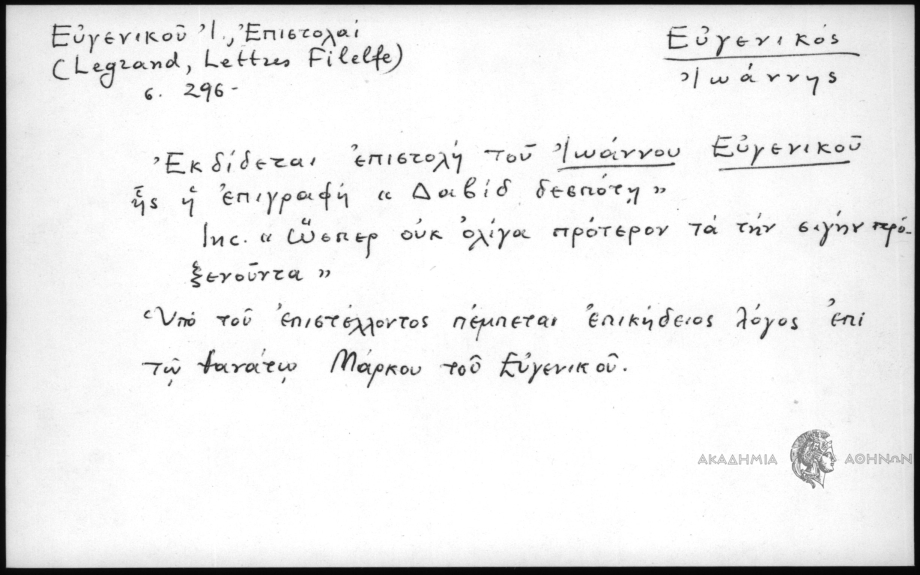 Εὐγενικοῦ Ἰ., Ἐπιστολαί
(Legrand, Lettres Filelfe)
σ. 296-
Εὐγενικός
Ἰωάννης
Ἐκδίδεται ἐπιστολή τοῦ Ἰωάννου Εὐγενικοῦ
ἧς ἡ ἐπιγραφή « Δαβίδ δεσπότῃ »
Inc. « Ὥσπερ οὐκ ὀλίγα πρότερον τά τήν σιγήν προ-
ξενοῦντα »
Ὑπό τοῦ ἐπιστέλλοντος πέμπεται ἐπικήδειος λόγος ἐπί
τῷ θανάτῳ Μάρκου τοῦ Εὐγενικοῦ.
ΑΚΑΔΗΜΙΑ ΑΘΗΝΩΝ